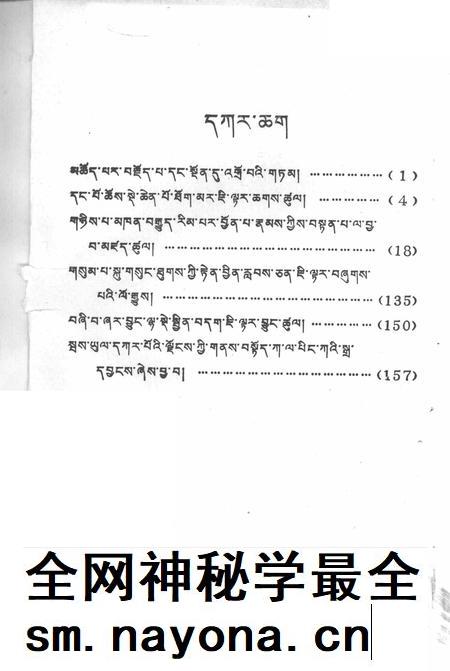 དཀར་ཆག
མཆོད་པར་བརྗོད་པ་དང་སྔོན་དུ་འགྲོ་བའི་གཏམ། ……………… (1)
དང་པོ་ཆོས་སྡེ་ཆེན་པོ་ཐོག་མར་ཇི་ལྟར་ཆགས་ཚུལ། …………… (4)
གཉིས་པ་མཁན་བརྒྱུད་རིམ་པར་བྱོན་པ་རྣམས་ཀྱིས་བསྟན་པ་ལ་བྱ་
བ་མཛད་ཚུལ། ……………………………………… (18)
གསུམ་པ་སྐུ་གསུང་ཐུགས་ཀྱི་རྟེན་བྱིན་རླབས་ཅན་ཇི་ལྟར་བཞུགས་
པའི་ལོ་རྒྱུས། ……………………………………… (135)
བཞི་བ་ཞར་བྱུང་ལྷ་སྡེ་སྦྱིན་བདག་ཇི་ལྟར་བྱུང་ཚུལ། …………… (150)
སྦས་ཡུལ་དཀར་པོའི་ལྗོངས་ཀྱི་གནས་བསྟོད་ཀ་ལ་པིང་ཀའི་སྒྲ་
དབྱངས་ཞེས་བྱ་བ། ………………………………… (157)
全网神秘学最全
sm.nayona.cn